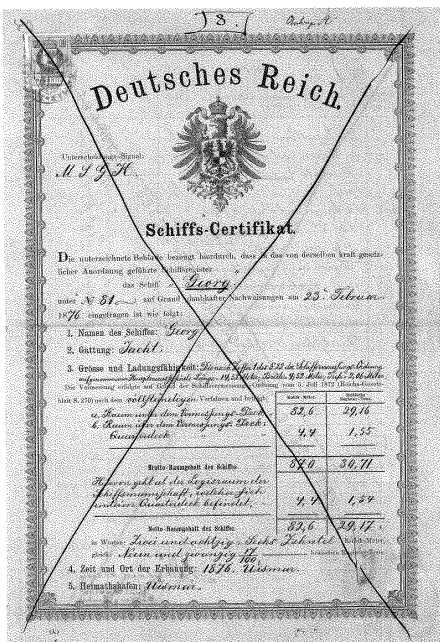 8.
Deutsches Reich.
Unterscheidungs-Signal:
M S G H.
Schiffs-Certifikat.
Die unterzeichnete Behörde bezeugt hierdurch, dass in das von derselben kraft gesetz-
licher Anordnung geführte Schiffsregister
das Schiff „Georg“
unter № 81 auf Grund glaubhafter Nachweisungen am 23. Februar
1876 eingetragen ist wie folgt:
1. Namen des Schiffes: Georg
2. Gattung: Jacht.
3. Grösse und Ladungsfähigkeit: Die nach Ziffer 1 des § 22 der Schiffsvermessungs-Ordnung
aufgenommenen Länge 14,53 Meter, Breite 4,52 Meter, Tiefe 2,06 Meter
Die Vermessung erfolgte auf Grund der Schiffsvermessungs-Ordnung vom 5. Juli 1872 (Reichs-Gesetz-
blatt S. 270) nach dem vollständigen Verfahren und beträgt:
a. Raum unter dem Vermessungs-Deck 82,6 29,16
b. Raum über dem Vermessungs-Deck:
Quarterdeck 4,4 1,55
Brutto-Raumgehalt des Schiffes 87,0 30,71
Hiervon geht ab der Logisraum der
Schiffsmannschaft, welcher sich
unterm Quarterdeck befindet, 4,4 1,54
Netto-Raumgehalt des Schiffes 82,6 29,17.
in Worten: Zwei und achtzig, Sechs Zehntel Kubik-Meter,
gleich: Neun und zwanzig 17/100
4. Zeit und Ort der Erbauung: 1876. Wismar.
5. Heimathshafen: Wismar.